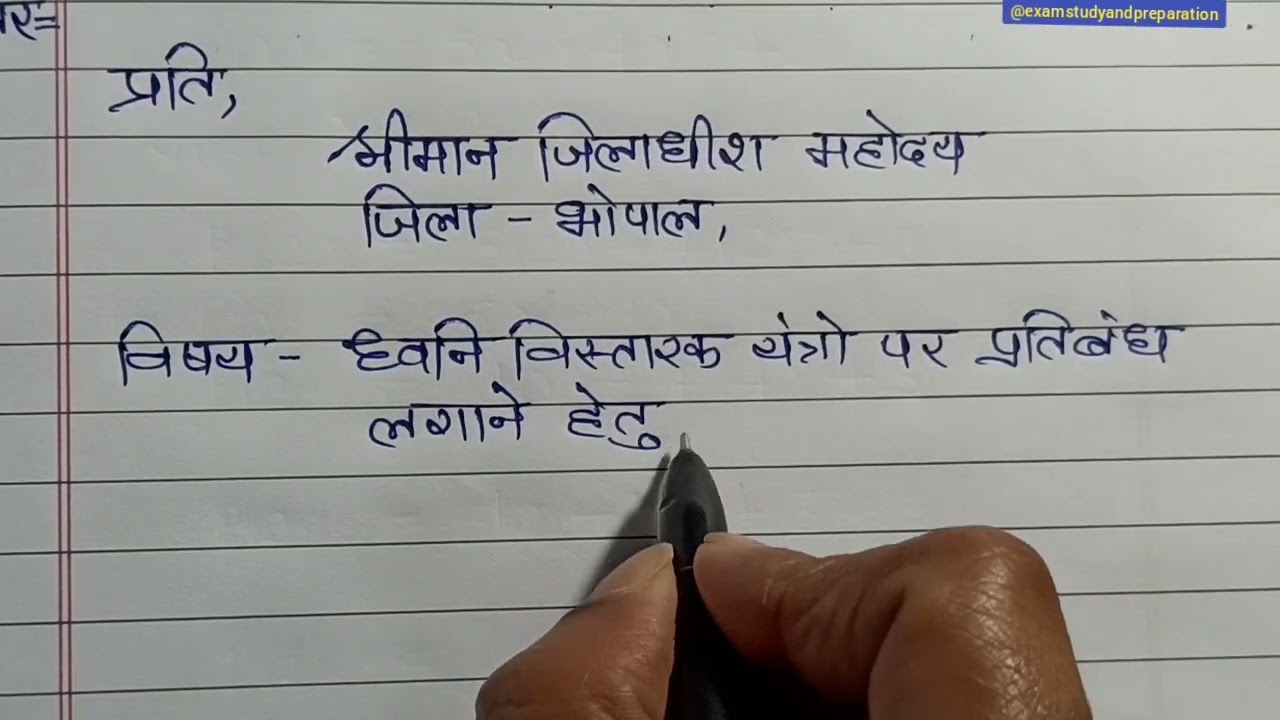 @examstudyandpreparation
प्रति,
श्रीमान जिलाधीश महोदय
जिला - भोपाल,
विषय - ध्वनि विस्तारक यंत्रो पर प्रतिबंध
लगाने हेतु